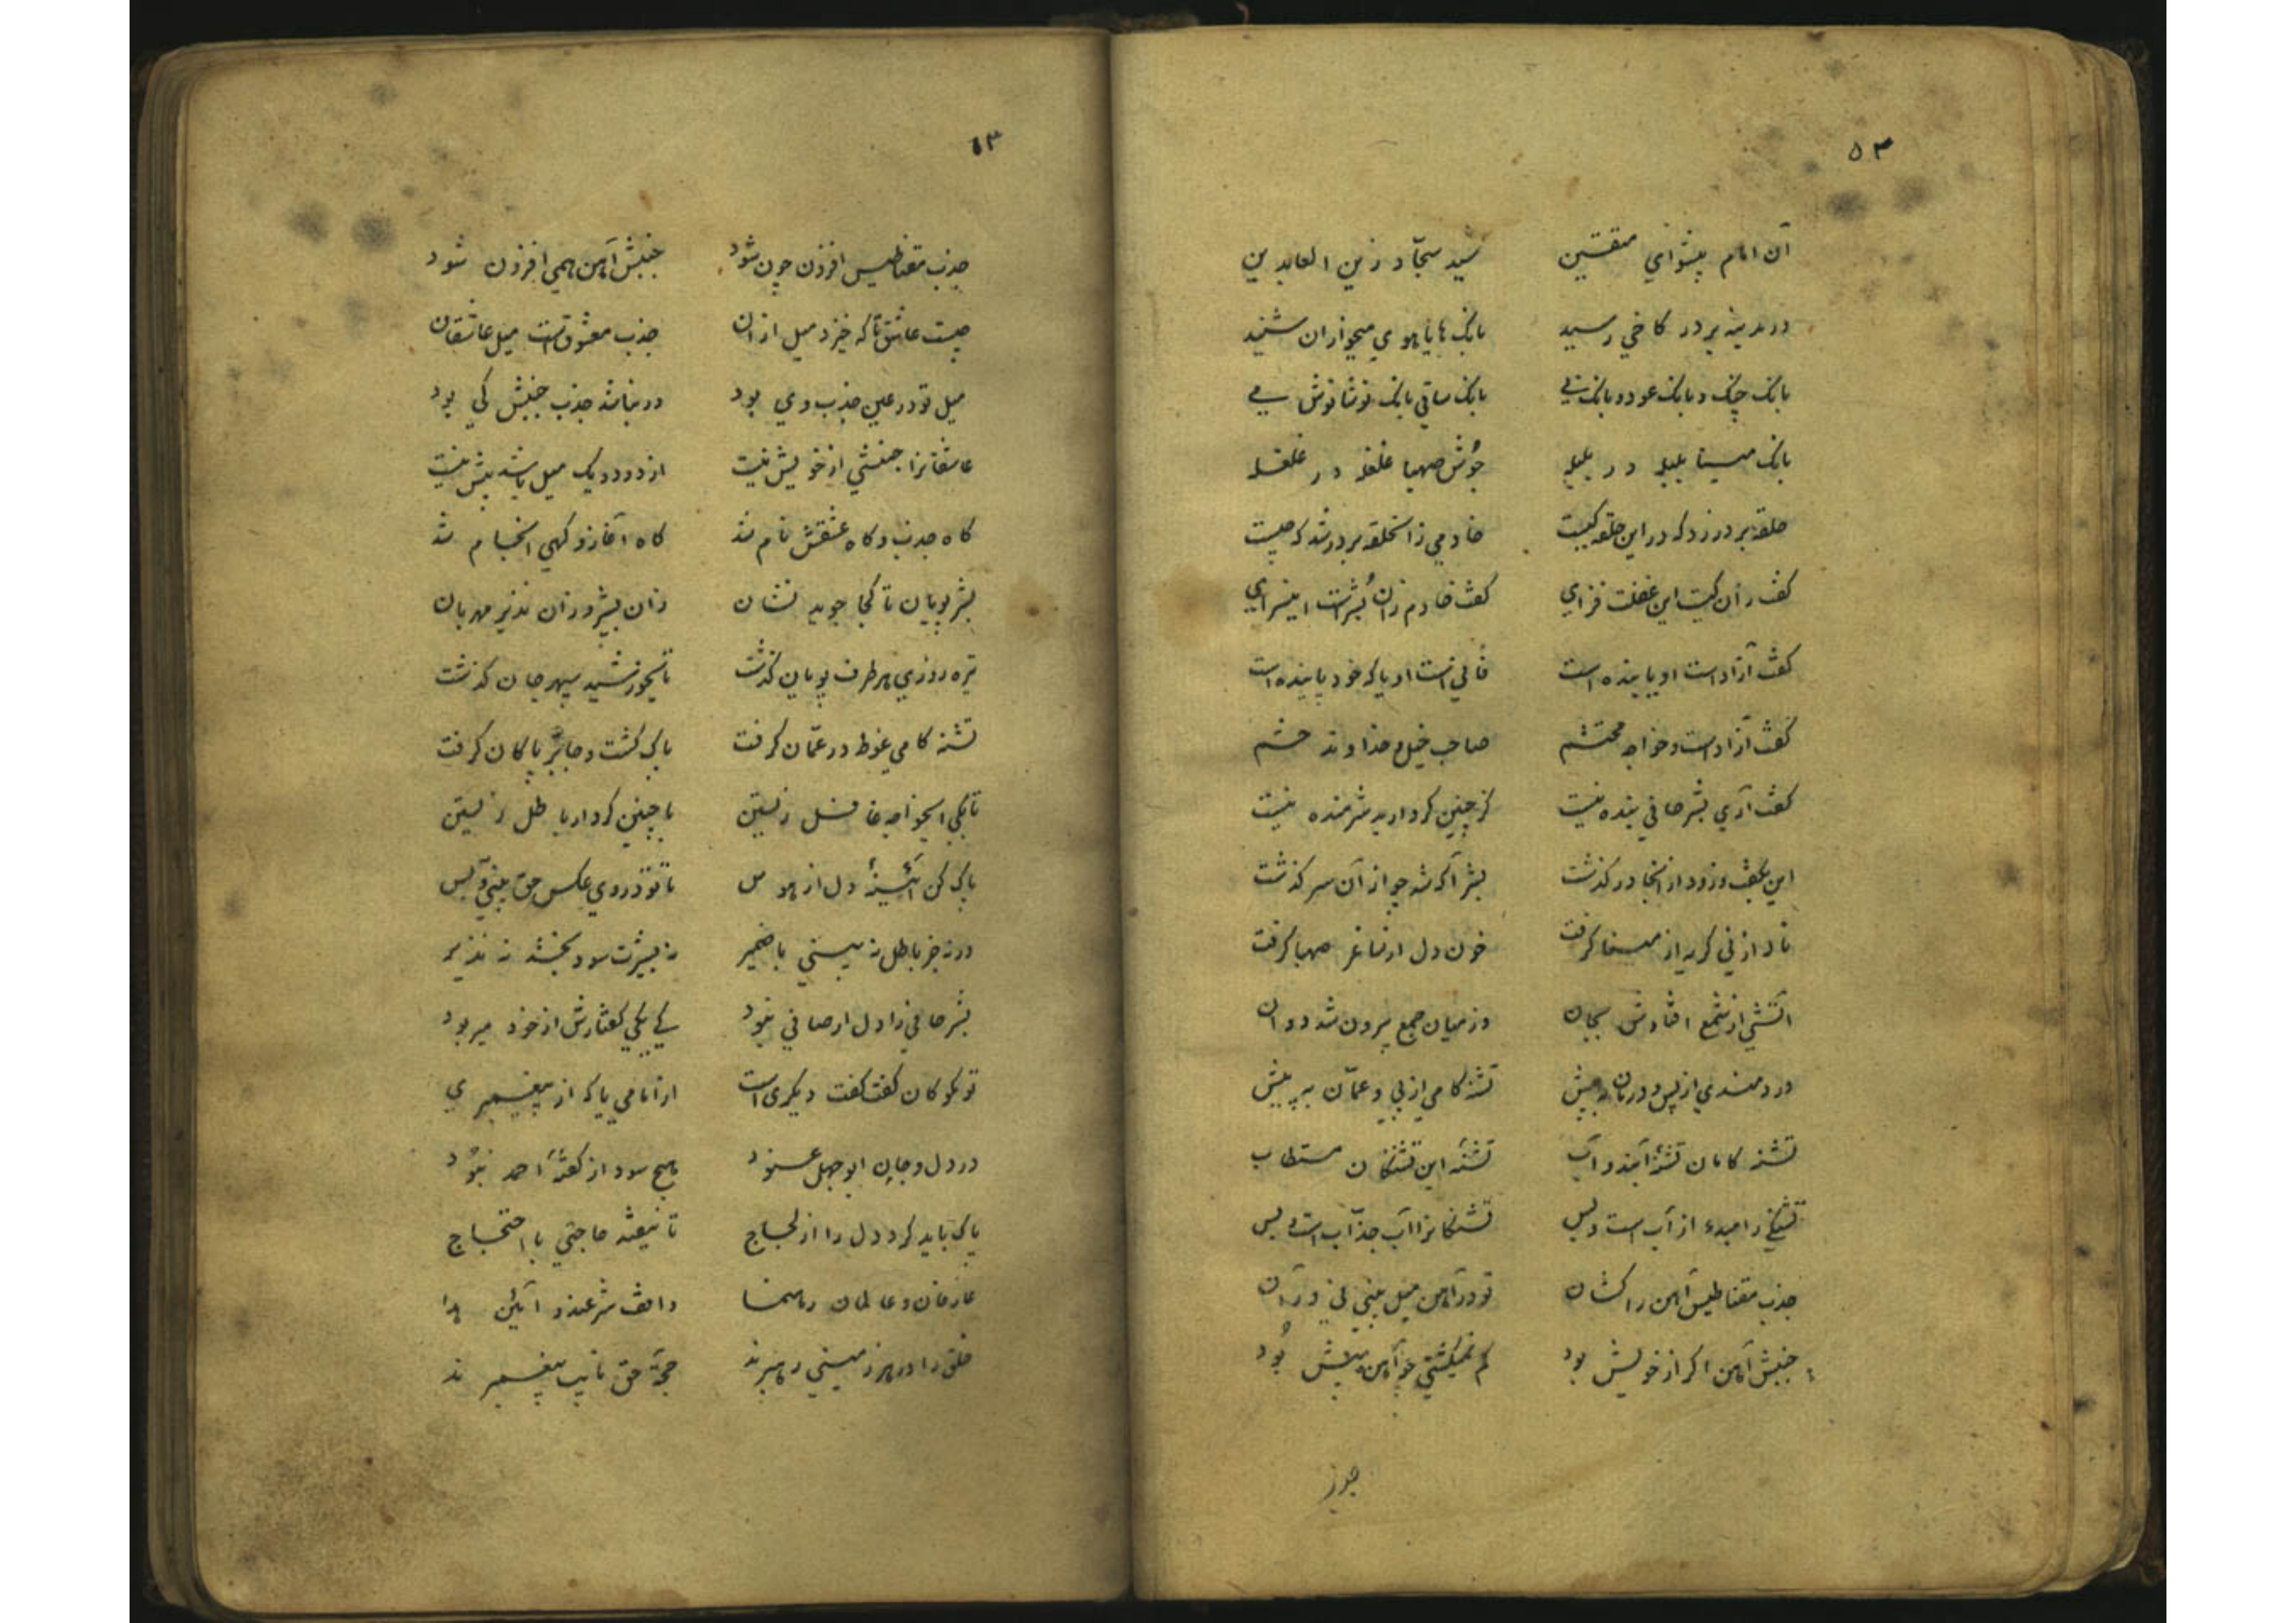 ۵۳
آن امام پیشوای متقین سید سجّاد و زین العابدین
در مدینه بر در کاخی رسید بانک هایاهوی میخواران شنید
بانک چنک و بانک عود و بانک نی بانک ساقی بانک نوشانوش می
بانک مینا بلبله در بلبله جوش صهبا غلغله در غلغله
حلقه بر در زد که در این حلقه کیست خادمی زانحلقه بر در شد که چیست
کفت زان کیست این غفلت فزای کفت خادم زان بُشر است اینسرای
کفت آزاد است او یا بنده است فانی است او یا که خود پاینده است
کفت آزاد است و خواجه محتشم صاحب خیل و خداوند حشم
کفت آری بشر حافی بنده نیست کز چنین کردار بد شرمنده نیست
این بکفت و زود از انجا در کذشت بشر آکه شد چو از آن سر کذشت
ناله از نی کریه از مینا کرفت خون دل از ساغر صهبا کرفت
آتشی از شمع افتادش بجان وز میان جمع بیرون شد دوان
دردمندی از پس و درمان به پیش تشنه کامی از پی و عمّان به پیش
تشنه کامان تشنهٔ آبند و آب تشنهٔ این تشنکان مستطاب
تشنکی را مبدء از آب است و بس تشنکانرا آب جذّاب است و بس
جذب مقناطیس آهن را کشان تو در آهن میل بینی نی در آن
جنبش آهن اکر از خویش بود کم نمیکشتی چو آهن بیش بُود
۱۳
جذب مقناطیس افزون چون شود جنبش آهن همی افزون شود
چیست عاشق تا که خیزد میل از ان جذب معشوقست میل عاشقان
میل تو در عین جذب وی بود ور نباشد جذب جنبش کی بود
عاشقانرا جنبشی از خویش نیست از دو رو یک میل باشد بیش نیست
کاه جذب و کاه عشقش نام شد کاه آغاز و کهی انجام شد
بشر پویان تا کجا جوید نشان زان بشیر و زان نذیر مهربان
تیره روزی هر طرف پویان کذشت تا بخورشید سپهر جان کذشت
تشنه کامی غوطه در عمّان کرفت پاک کشت و جا بر پاکان کرفت
تا بکی ایخواجه غافل زیستن با چنین کردار باطل زیستن
پاک کن آئینهٔ دل از هوس تا تو در وی عکس حق بینی و بس
ورنه جز باطل نه بینی با ضمیر نه بشیرت سود بخشد نه نذیر
بشر حافی را دل ار صافی نبود کی بیکی کفتارش از خود میربود
تو مکو کان کفت کفت دیکری است از امامی یا که از پیغمبری
در دل و جان ابوجهل عنود هیچ سود از کفتهٔ احمد نبود
پاک باید کرد دل را از لجاج تا نیفتد حاجتی با احتجاج
عارفان و عالمان رهنما واقف شرعند و آئین هدا
خلق را در هر زمینی رهبرند حجّة حق نایب پیغمبرند